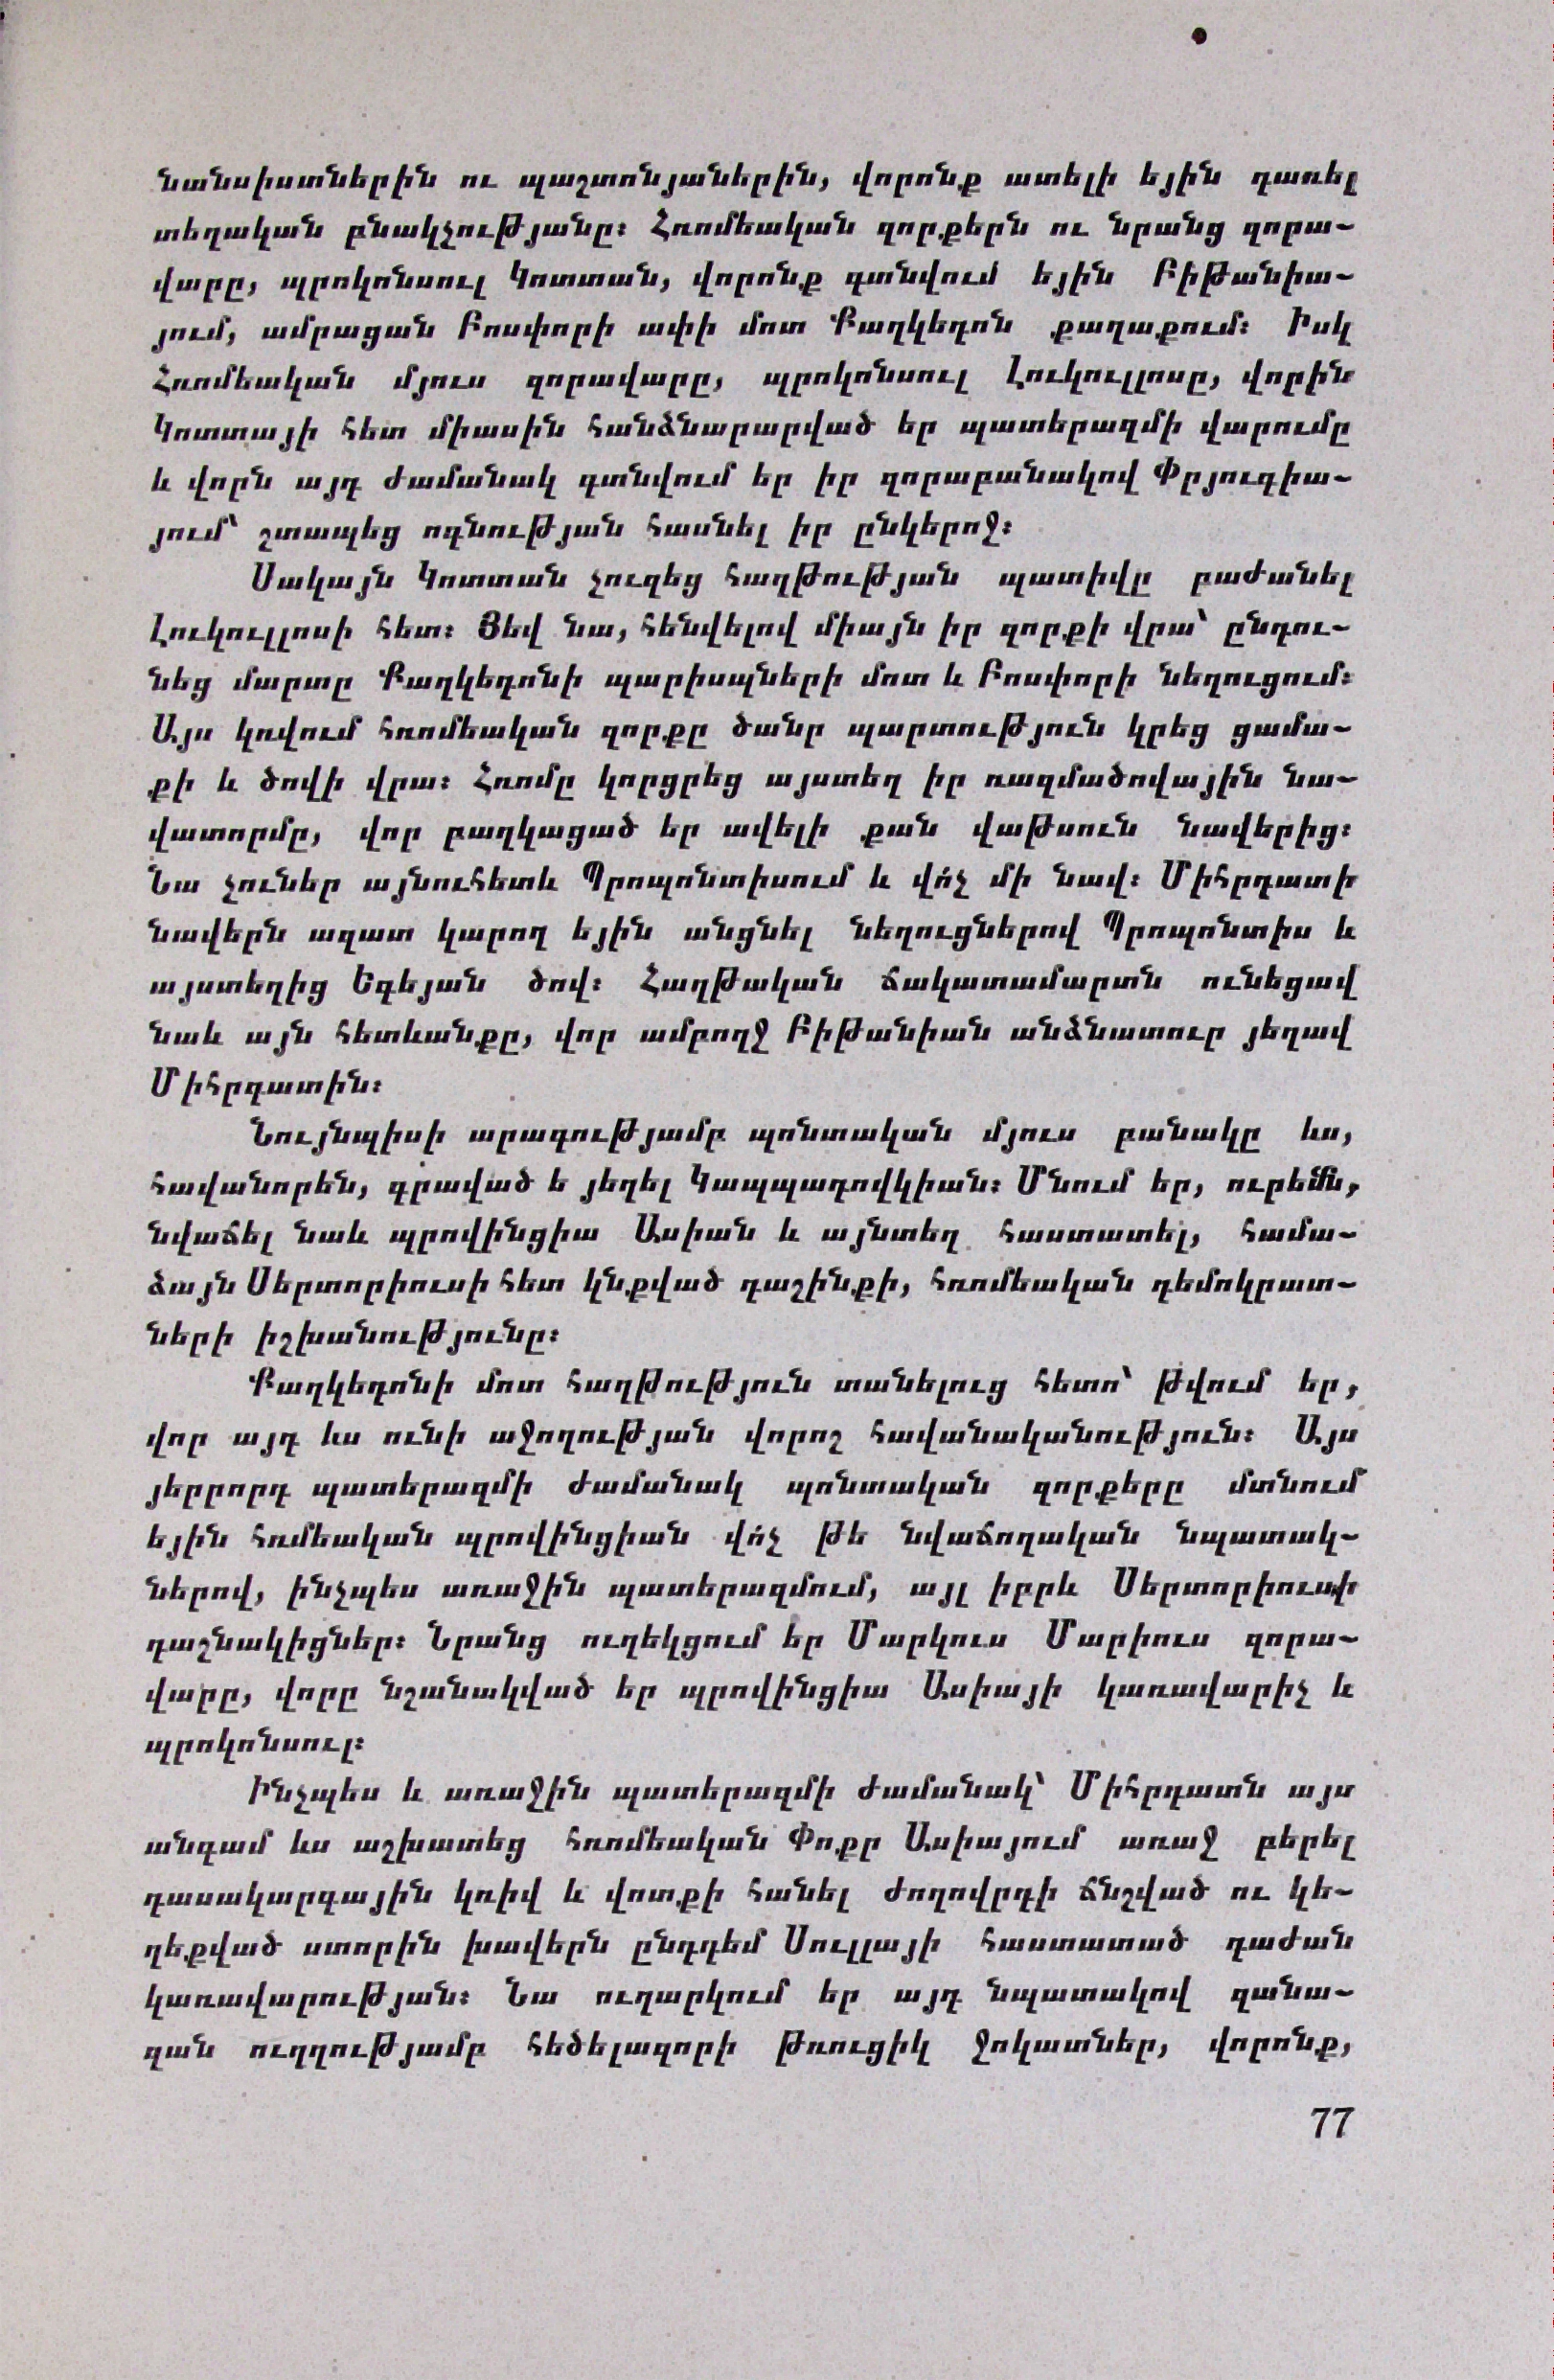 նանսիստներին ու պաշտոնյաներին, վորոնք ատելի եյին դառել
տեղական բնակչությանը։ Հռոմեական զորքերն ու նրանց զորա-
վարը, պրոկոնսուլ Կոտտան, վորոնք գտնվում եյին Բիթանիա-
յում, ամրացան Բոսփորի ափի մոտ Քաղկեդոն քաղաքում։ Իսկ
Հռոմեական մյուս զորավարը, պրոկոնսուլ Լուկուլլոսը, վորին
Կոտտայի հետ միասին հանձնարարված եր պատերազմի վարումը
և վորն այդ ժամանակ գտնվում եր իր զորաբանակով Փրյուգիա-
յում՝ շտապեց ոգնության հասնել իր ընկերոջ։
Սակայն Կոտտան չուզեց հաղթության պատիվը բաժանել
Լուկուլլոսի հետ։ Յեվ նա, հենվելով միայն իր զորքի վրա՝ ընդու-
նեց մարտը Քաղկեդոնի պարիսպների մոտ և Բոսփորի նեղուցում։
Այս կռվում հռոմեական զորքը ծանր պարտություն կրեց ցամա-
քի և ծովի վրա։ Հռոմը կորցրեց այստեղ իր ռազմածովային նա-
վատորմը, վոր բաղկացած եր ավելի քան վաթսուն նավերից։
Նա չուներ այնուհետև Պրոպոնտիսում և վոչ մի նավ։ Միհրդատի
նավերն ազատ կարող եյին անցնել նեղուցներով Պրոպոնտիս և
այստեղից Եգեյան ծով։ Հաղթական ճակատամարտն ունեցավ
նաև այն հետևանքը, վոր ամբողջ Բիթանիան անձնատուր յեղավ
Միհրդատին։
Նույնպիսի արագությամբ պոնտական մյուս բանակը ևս,
հավանորեն, գրաված ե յեղել Կապպադովկիան։ Մնում եր, ուրեմն,
նվաճել նաև պրովինցիա Ասիան և այնտեղ հաստատել, համա-
ձայն Սերտորիուսի հետ կնքված դաշինքի, հռոմեական դեմոկրատ-
ների իշխանությունը։
Քաղկեդոնի մոտ հաղթություն տանելուց հետո՝ թվում եր,
վոր այդ ևս ունի աջողության վորոշ հավանականություն։ Այս
յերրորդ պատերազմի ժամանակ պոնտական զորքերը մտնում
եյին հռմեական պրովինցիան վոչ թե նվաճողական նպատակ-
ներով, ինչպես առաջին պատերազմում, այլ իբրև Սերտորիուսի
դաշնակիցներ։ Նրանց ուղեկցում եր Մարկուս Մարիուս զորա-
վարը, վորը նշանակված եր պրովինցիա Ասիայի կառավարիչ և
պրոկոնսուլ։
Ինչպես և առաջին պատերազմի ժամանակ՝ Միհրդատն այս
անգամ ևս աշխատեց հռոմեական Փոքր Ասիայում առաջ բերել
դասակարգային կռիվ և վոտքի հանել ժողովրդի ճնշված ու կե-
ղեքված ստորին խավերն ընդդեմ Սուլլայի հաստատած դաժան
կառավարության։ Նա ուղարկում եր այդ նպատակով զանա-
զան ուղղությամբ հեծելազորի թռուցիկ ջոկատներ, վորոնք,
77